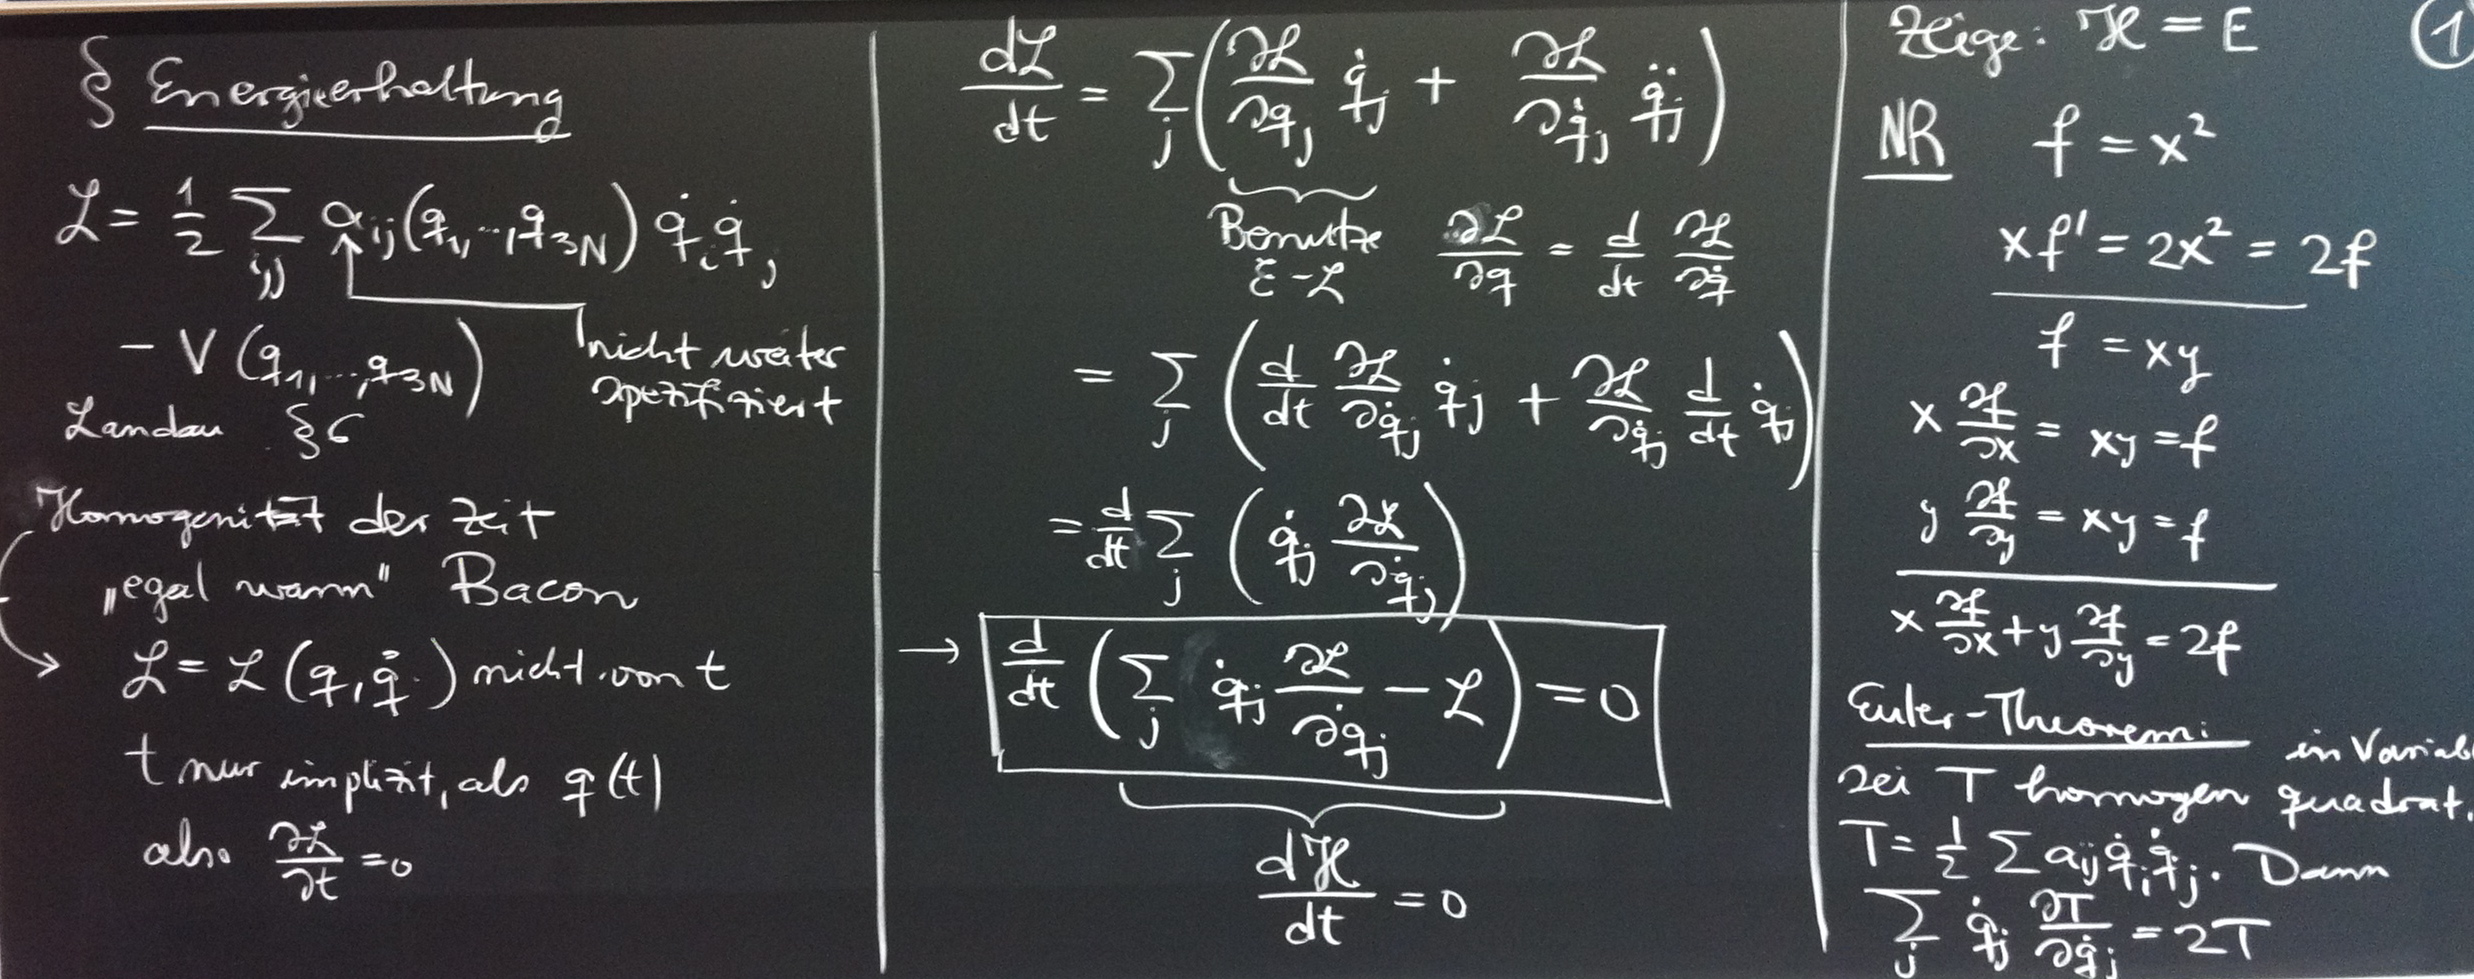 § Energieerhaltung
ℒ = 1/2 ∑_{ij} a_{ij}(q_1, ..., q_{3N}) q̇_i q̇_j
- V(q_1, ..., q_{3N})
nicht weiter
spezifiziert
Landau §6
Homogenität der Zeit
„egal wann" Bacon
→ ℒ = ℒ(q, q̇) nicht von t
t nur implizit, als q(t)
also ∂ℒ/∂t = 0
dℒ/dt = ∑_j (∂ℒ/∂q_j q̇_j + ∂ℒ/∂q̇_j q̈_j)
Benutze ∂ℒ/∂q = d/dt ∂ℒ/∂q̇
E-L
= ∑_j (d/dt ∂ℒ/∂q̇_j q̇_j + ∂ℒ/∂q̇_j d/dt q̇_j)
= d/dt ∑_j (q̇_j ∂ℒ/∂q̇_j)
→ d/dt (∑_j q̇_j ∂ℒ/∂q̇_j - ℒ) = 0
dℋ/dt = 0
Zeige: ℋ = E ①
NR f = x²
x f' = 2x² = 2f
f = xy
x ∂f/∂x = xy = f
y ∂f/∂y = xy = f
x ∂f/∂x + y ∂f/∂y = 2f
Euler-Theorem: in Variab
sei T homogen quadrat.
T = 1/2 ∑ a_{ij} q̇_i q̇_j. Dann
∑_j q̇_j ∂T/∂q̇_j = 2T